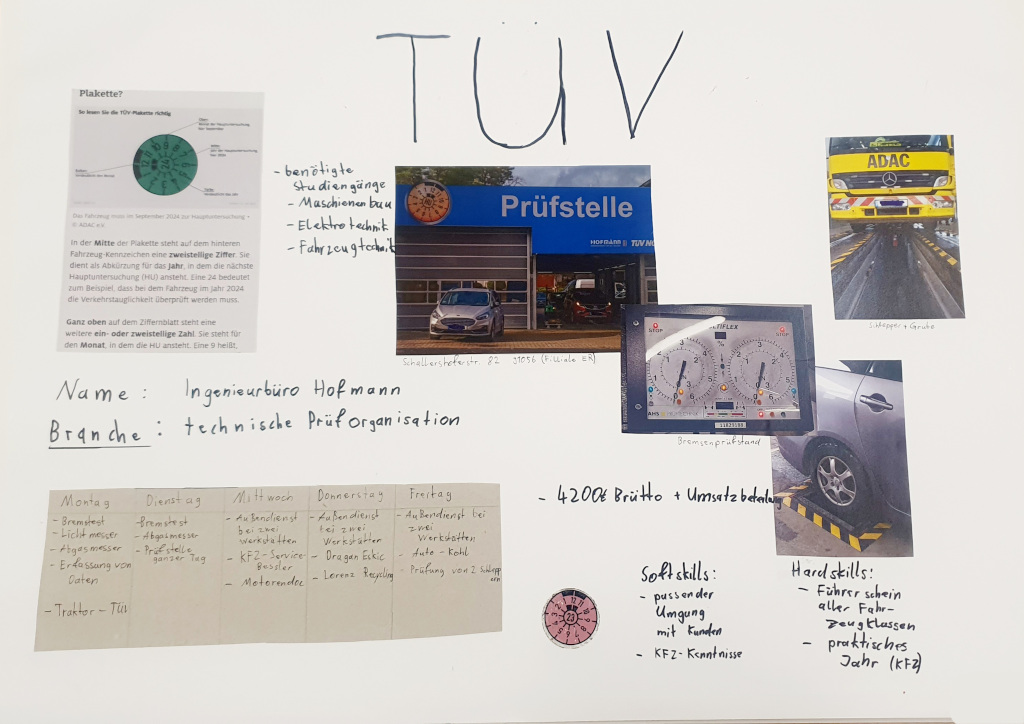 TÜV
Plakette?
So lesen Sie die TÜV-Plakette richtig
Das Fahrzeug muss im September 2024 zur Hauptuntersuchung •
© ADAC e.V.
In der Mitte der Plakette steht auf dem hinteren
Fahrzeug-Kennzeichen eine zweistellige Ziffer. Sie
dient als Abkürzung für das Jahr, in dem die nächste
Hauptuntersuchung (HU) ansteht. Eine 24 bedeutet
zum Beispiel, dass bei dem Fahrzeug im Jahr 2024
die Verkehrstauglichkeit überprüft werden muss.
Ganz oben auf dem Ziffernblatt steht eine
weitere ein- oder zweistellige Zahl. Sie steht für
den Monat, in dem die HU ansteht. Eine 9 heißt,
- benötigte
Studiengänge
- Maschienenbau
- Elektrotechnik
- Fahrzeugtechnik
Prüfstelle
HOFMANN
TÜV NO
Schallershoferstr. 82 91056 (Filliale ER)
ADAC
Schlepper + Grube
STOP
STOP
11023108
Bremsenprüfstand
Name: Ingenieurbüro Hofmann
Branche: technische Prüforganisation
- 4200€ Brütto + Umsatzbeteilung
Montag
- Bremstest
- Lichtmesser
- Abgasmesser
- Erfassung von
Daten
- Traktor - TÜV
Dienstag
- Bremstest
- Abgasmesser
- Prüfstelle
ganzer Tag
Mittwoch
- Außendienst
bei zwei
Werkstätten
- KFZ-Service-
Bossler
- Motorendoc
Donnerstag
- Außendienst
bei zwei
Werkstätten
- Dragan Eskic
- Lorenz Recycling
Freitag
- Außendienst bei
zwei
Werkstätten
- Auto-Kohl
- Prüfung von 2 Schleppern
23
Softskills:
- passender
Umgung
mit Kunden
- KFZ-Kenntnisse
Hardskills:
- Führerschein
aller Fahr-
zeugklassen
- praktisches
Jahr (KFZ)